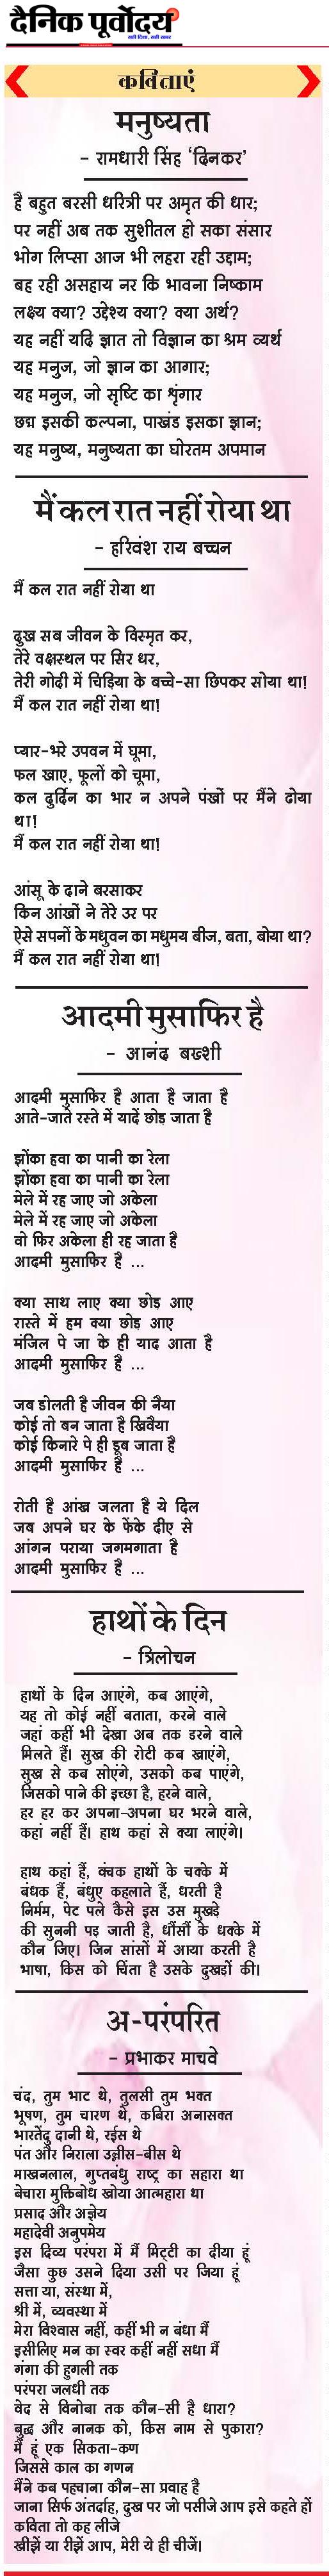 दैनिक पूर्वोदय
सही दिशा, सही खबर
कविताएं
मनुष्यता
- रामधारी सिंह ‘दिनकर’
है बहुत बरसी धरित्री पर अमृत की धार;
पर नहीं अब तक सुशीतल हो सका संसार
भोग लिप्सा आज भी लहरा रही उद्दाम;
बह रही असहाय नर कि भावना निष्काम
लक्ष्य क्या? उद्देश्य क्या? क्या अर्थ?
यह नहीं यदि ज्ञात तो विज्ञान का श्रम व्यर्थ
यह मनुज, जो ज्ञान का आगार;
यह मनुज, जो सृष्टि का शृंगार
छद्म इसकी कल्पना, पाखंड इसका ज्ञान;
यह मनुष्य, मनुष्यता का घोरतम अपमान
मैं कल रात नहीं रोया था
- हरिवंश राय बच्चन
मैं कल रात नहीं रोया था
दुख सब जीवन के विस्मृत कर,
तेरे वक्षस्थल पर सिर धर,
तेरी गोदी में चिड़िया के बच्चे-सा छिपकर सोया था!
मैं कल रात नहीं रोया था!
प्यार-भरे उपवन में घूमा,
फल खाए, फूलों को चूमा,
कल दुर्दिन का भार न अपने पंखों पर मैंने ढोया
था!
मैं कल रात नहीं रोया था!
आंसू के दाने बरसाकर
किन आंखों ने तेरे उर पर
ऐसे सपनों के मधुवन का मधुमय बीज, बता, बोया था?
मैं कल रात नहीं रोया था!
आदमी मुसाफिर है
- आनंद बख्शी
आदमी मुसाफिर है आता है जाता है
आते-जाते रस्ते में यादें छोड़ जाता है
झोंका हवा का पानी का रेला
झोंका हवा का पानी का रेला
मेले में रह जाए जो अकेला
मेले में रह जाए जो अकेला
वो फिर अकेला ही रह जाता है
आदमी मुसाफिर है ...
क्या साथ लाए क्या छोड़ आए
रास्ते में हम क्या छोड़ आए
मंजिल पे जा के ही याद आता है
आदमी मुसाफिर है ...
जब डोलती है जीवन की नैया
कोई तो बन जाता है खिवैया
कोई किनारे पे ही डूब जाता है
आदमी मुसाफिर है ...
रोती है आंख जलता है ये दिल
जब अपने घर के फेंके दीए से
आंगन पराया जगमगाता है
आदमी मुसाफिर है ...
हाथों के दिन
- त्रिलोचन
हाथों के दिन आएंगे, कब आएंगे,
यह तो कोई नहीं बताता, करने वाले
जहां कहीं भी देखा अब तक डरने वाले
मिलते हैं। सुख की रोटी कब खाएंगे,
सुख से कब सोएंगे, उसको कब पाएंगे,
जिसको पाने की इच्छा है, हरने वाले,
हर हर कर अपना-अपना घर भरने वाले,
कहां नहीं हैं। हाथ कहां से क्या लाएंगे।
हाथ कहां हैं, वंचक हाथों के चक्के में
बंधक हैं, बंधुए कहलाते हैं, धरती है
निर्मम, पेट पले कैसे इस उस मुखड़े
की सुननी पड़ जाती है, धौंसौं के धक्के में
कौन जिए। जिन सांसों में आया करती है
भाषा, किस को चिंता है उसके दुखड़ों की।
अ-परंपरित
- प्रभाकर माचवे
चंद, तुम भाट थे, तुलसी तुम भक्त
भूषण, तुम चारण थे, कबिरा अनासक्त
भारतेंदु दानी थे, रईस थे
पंत और निराला उन्नीस-बीस थे
माखनलाल, गुप्तबंधु राष्ट्र का सहारा था
बेचारा मुक्तिबोध खोया आत्महारा था
प्रसाद और अज्ञेय
महादेवी अनुपमेय
इस दिव्य परंपरा में मैं मिट्टी का दीया हूं
जैसा कुछ उसने दिया उसी पर जिया हूं
सत्ता या, संस्था में,
श्री में, व्यवस्था में
मेरा विश्वास नहीं, कहीं भी न बंधा मैं
इसीलिए मन का स्वर कहीं नहीं सधा मैं
गंगा की हुगली तक
परंपरा जलधी तक
वेद से विनोबा तक कौन-सी है धारा?
बुद्ध और नानक को, किस नाम से पुकारा?
मैं हूं एक सिकता-कण
जिससे काल का गणन
मैंने कब पहचाना कौन-सा प्रवाह है
जाना सिर्फ अंतर्दाह, दुख पर जो पसीजे आप इसे कहते हों
कविता तो कह लीजे
खीझें या रीझें आप, मेरी ये ही चीजें।